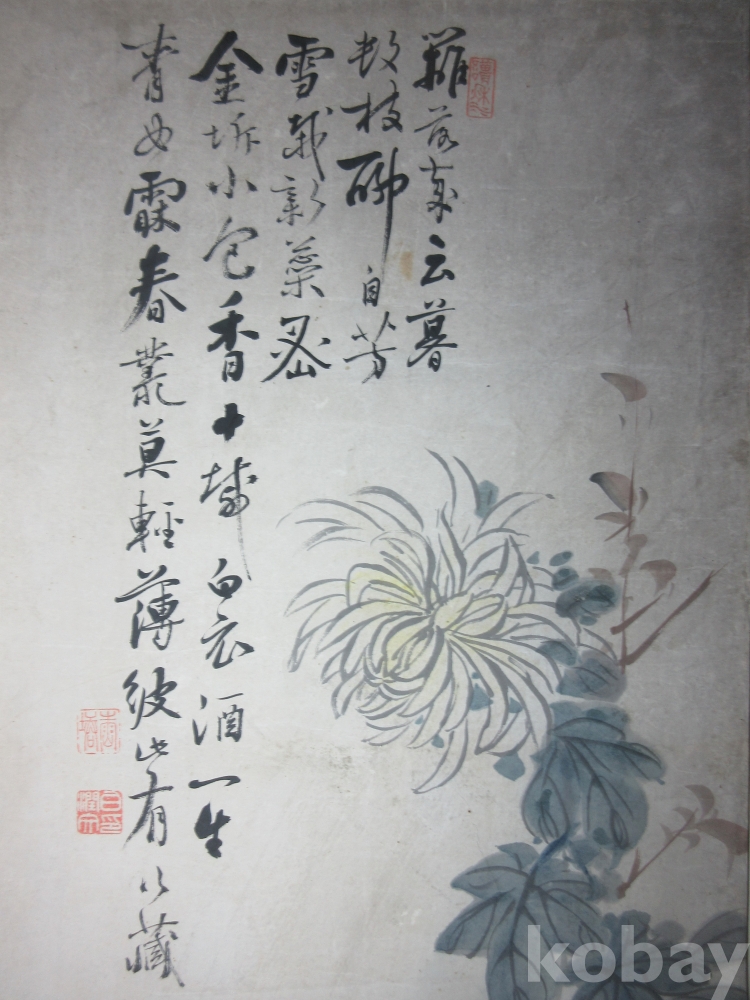 籬落歲云暮
數枝聊自芳
雪裁新蘂密
金坼小包香千載白衣酒一生
青女霜春叢莫輕薄彼此有行藏
kobay